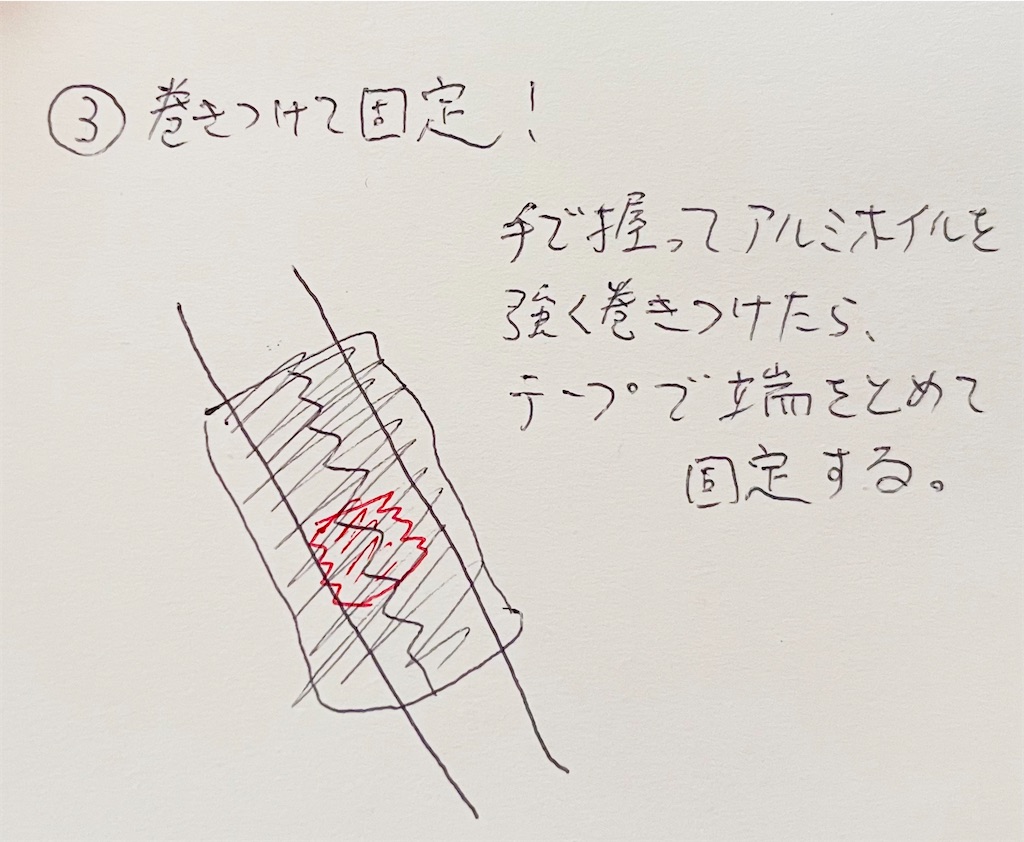 ③ 巻きつけて固定!
手で握ってアルミホイルを
強く巻きつけたら、
テープで端をとめて
固定する。